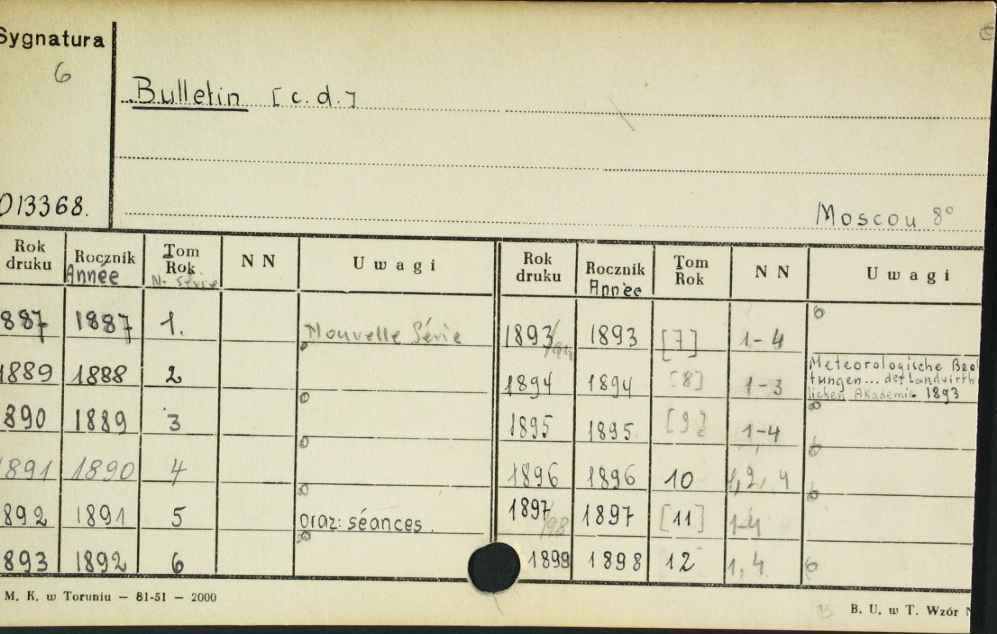 Sygnatura
6
Bulletin [c.d.]
013368.
Moscou 8°
Rok druku Rocznik Année Tom Rok N. Série N N Uwagi Rok druku Rocznik Année Tom Rok N N Uwagi
887 1887 1. Nouvelle Série 1893/94 1893 [7] 1-4
1889 1888 2 1894 1894 [8] 1-3 Meteorologische Beo
tungen... der Landwirth
lichen Akademie 1893
890 1889 3 1895 1895 [9] 1-4
1891 1890 4 1896 1896 10 1,2,4
892 1891 5 oraz: séances. 1897/98 1897 [11] 1-4
893 1892 6 1899 1898 12 1,4
M. K. w Toruniu — 81-51 — 2000
B. U. w T. Wzór